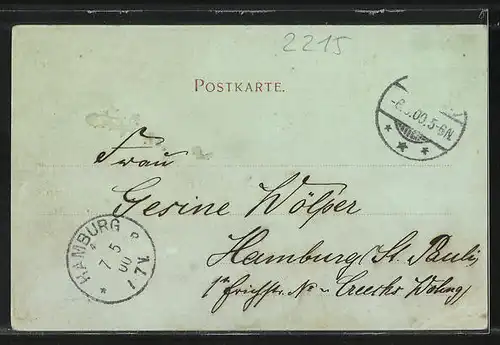 2215
POSTKARTE.
-6.5.00.5-6N.
Frau
Gesine Wölper
Hamburg/St. Pauli
HAMBURG
7 5
00